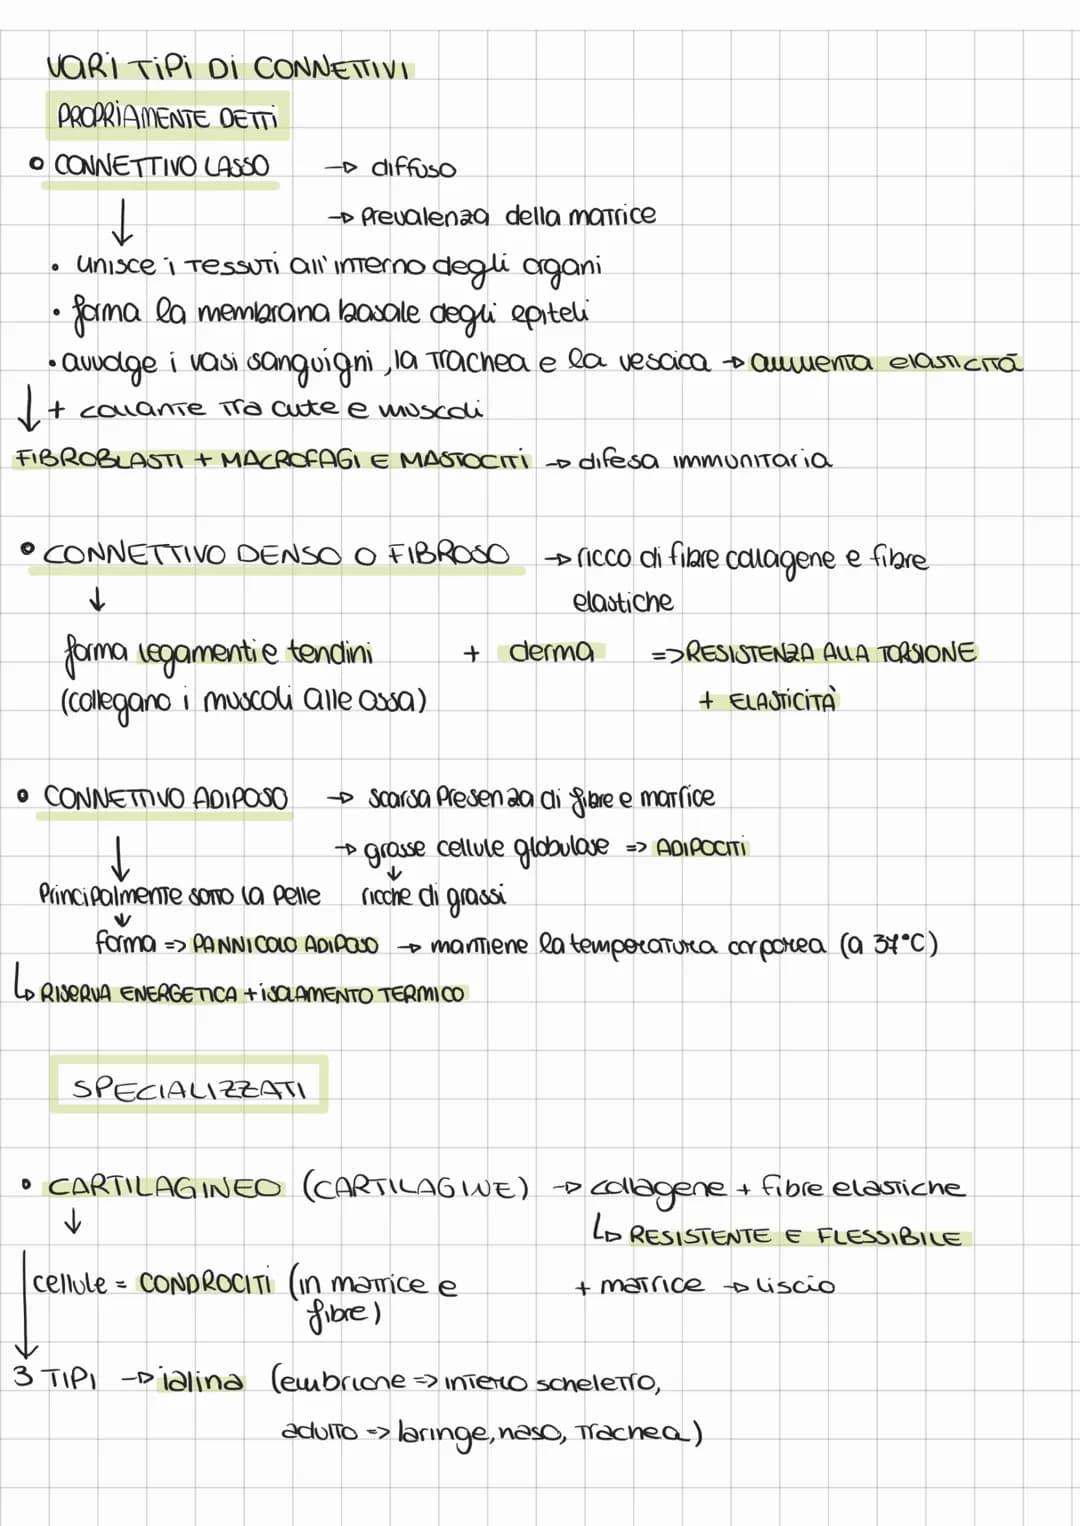 VARI TIPI DI CONNETTIVI
PROPRIAMENTE DETTI
• CONNETTIVO LASSO → diffuso
→ Prevalenza della matrice
↓
• unisce i tessuti all'interno degli organi
• forma la membrana basale degli epiteli
• avvolge i vasi sanguigni, la trachea e la vescica → aumenta elasticità
↓ + collante tra cute e muscoli
FIBROBLASTI + MACROFAGI E MASTOCITI → difesa immunitaria
• CONNETTIVO DENSO O FIBROSO → ricco di fibre collagene e fibre
↓ elastiche
forma legamenti e tendini + derma => RESISTENZA ALLA TORSIONE
(collegano i muscoli alle ossa) + ELASTICITÀ
• CONNETTIVO ADIPOSO → scarsa Presenza di fibre e matrice
↓ → grasse cellule globulose => ADIPOCITI
↓
Principalmente sotto la Pelle ricche di grassi
↓
forma => PANNICOLO ADIPOSO → mantiene la temperatura corporea (a 37°C)
↳ RISERVA ENERGETICA + ISOLAMENTO TERMICO
SPECIALIZZATI
• CARTILAGINEO (CARTILAGINE) → collagene + fibre elastiche
↓ ↳ RESISTENTE E FLESSIBILE
cellule = CONDROCITI (in matrice e + matrice → liscio
fibre)
↓
3 TIPI → ialina (embrione => intero scheletro,
adulto => laringe, naso, trachea)